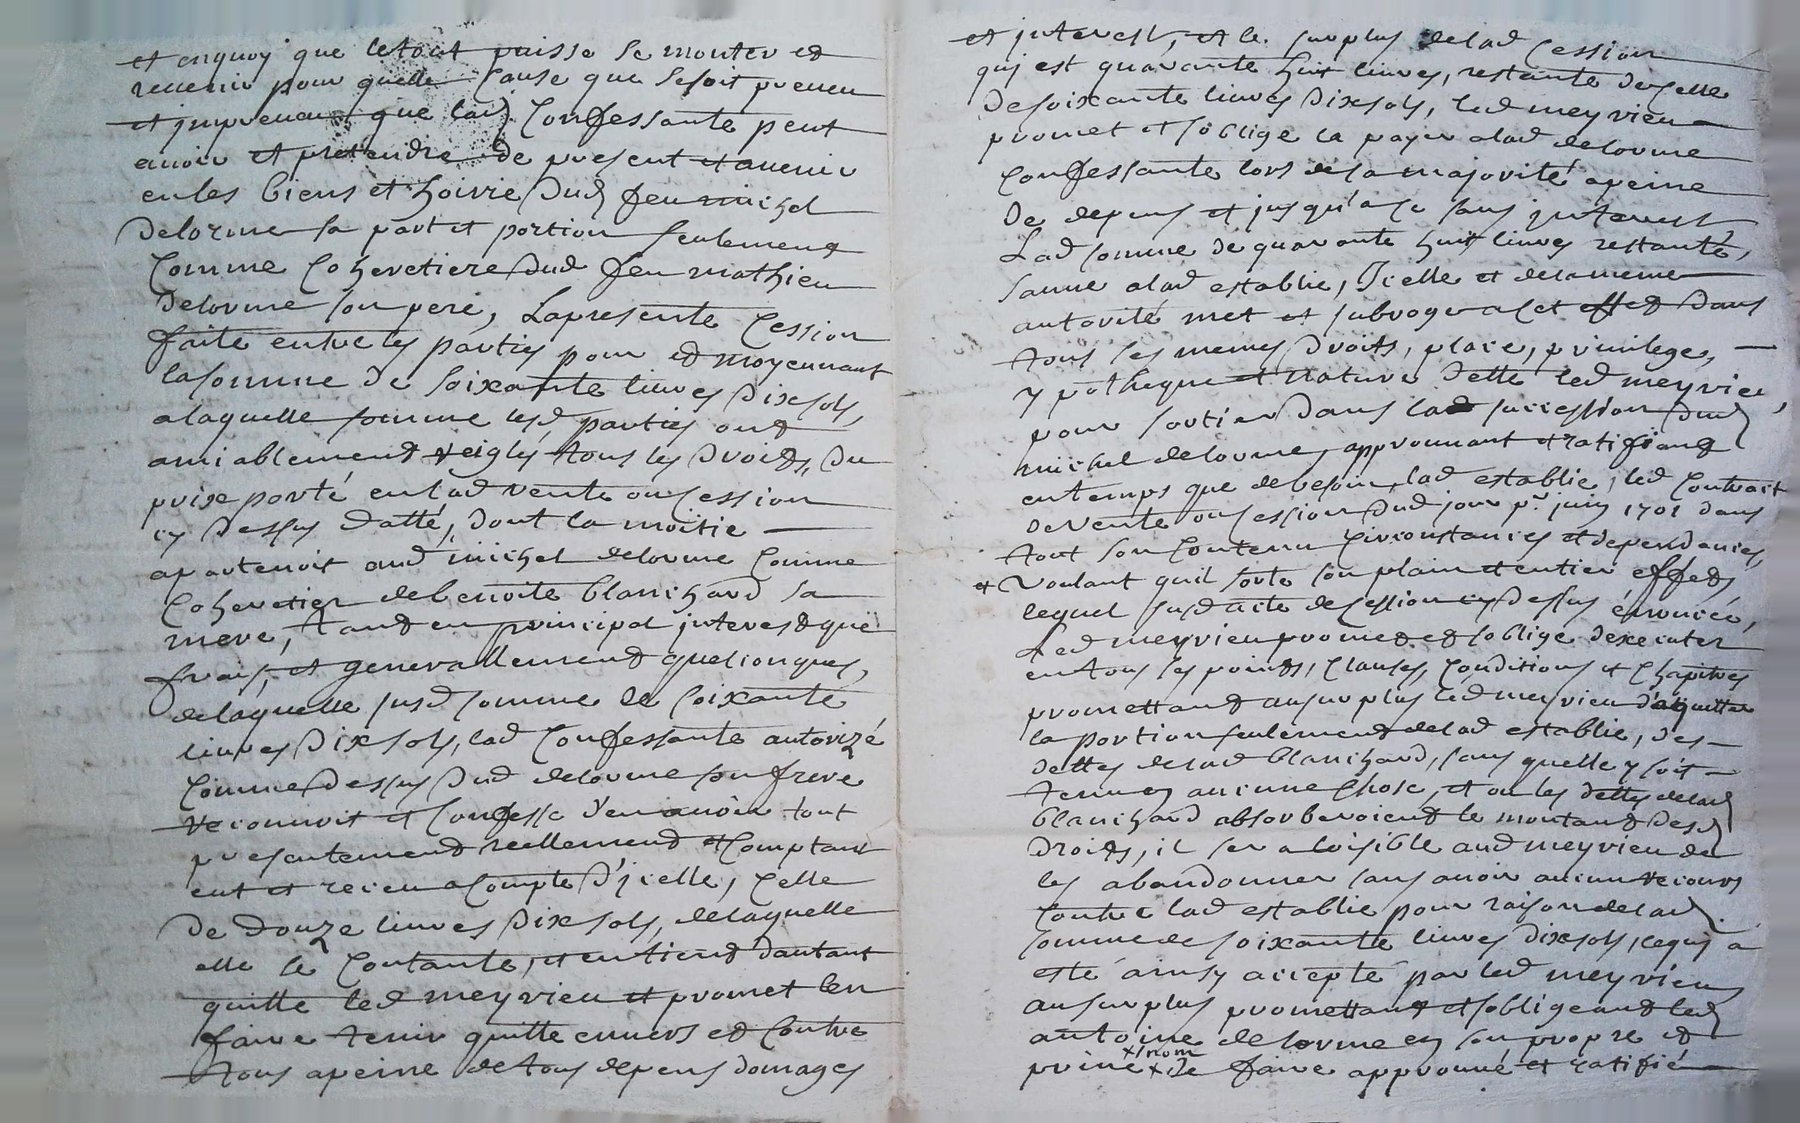 et enquoy que letout puisse se monter et
revenir pour quelle cause que cesoit preveu
et impreveu que lad confessante peut
avoir et pretendre de present et avenir
en les biens et hoirie dud feu michel
delorme sa part et portion seulement
comme cohereti​ere dud feu mathieu
delorme son pere, Lapresente cession
faite entre les parties pour et moyennant
lasomme de soixante livres dix sols,
a laquelle somme lesd parties ont
amiablement reiglé tous les droits, du
prix porté en lad vente ou cession
cy dessus datté, dont la moitie
apartenoit aud michel delorme comme
coheretier de benoite blanchard sa
mere, tant en principal interest que
frais, et generallement quelconques,
delaquelle susd somme de soixante
livres dix sols, lad confessante autorizé
comme dessus dud delorme son frere
reconnoit et confesse d'en avoir tout
presentement reellement et comptant
eut et receu acompte d'jcelle, celle
de douze livres dix sols, delaquelle
elle se contante, et entient dautant
quitte led meyrieu et promet len
faire tenir quitte envers et contre
tous apeine de tous depens domages
et jnterest, et le surplus delad cession
qui est quarante huit livres, restante de celle
de soixante livres dix sols, led meyrieu
promet et soblige la payer alad delorme
confessante lors de sa majorité apeine
de depens et jusqu'a ce sans jnterest
Lad somme de quarante huit livres restante,
sauve alad establie, Jcelle et delameme
autorité met et subroge a cet effet dans
tous les memes droits, place, privilege,
ypotheque et nature dette led meyrieu,
pour sortir dans lad succession dud
michel delorme, approuvant et ratifiant
entemps que de besoin lad establie, led contrait
de vente ou cession dud jour pr juin 1701 dans
tout son contenu circonstances et dependances,
et voulant quil sorte son plain et entier effets
lequel susd acte de cession cy dessus énoncée,
Led meyrieu promet et soblige dexecuter
en tous ses points, clauses, conditions et chapitres
promettant au surplus led meyrieu d'aquitter
la portion seulement delad establie, des
dettes delad blanchard, sans quelle y soit
tenue en aucune chose, et ou les dettes delad
blanchard absorberoient le montant desd
droits, il sera loisible aud meyrieu de
les abandonner sans avoir aucun recours
contre lad establie pour raison delad
somme de soixante livres dix sols, ce qui a
esté ainsy accepté par led meyrieu
au surplus promettant et sobligeant led
antoine delorme en son propre et
x nom
privé x de faire approuvé et ratifié